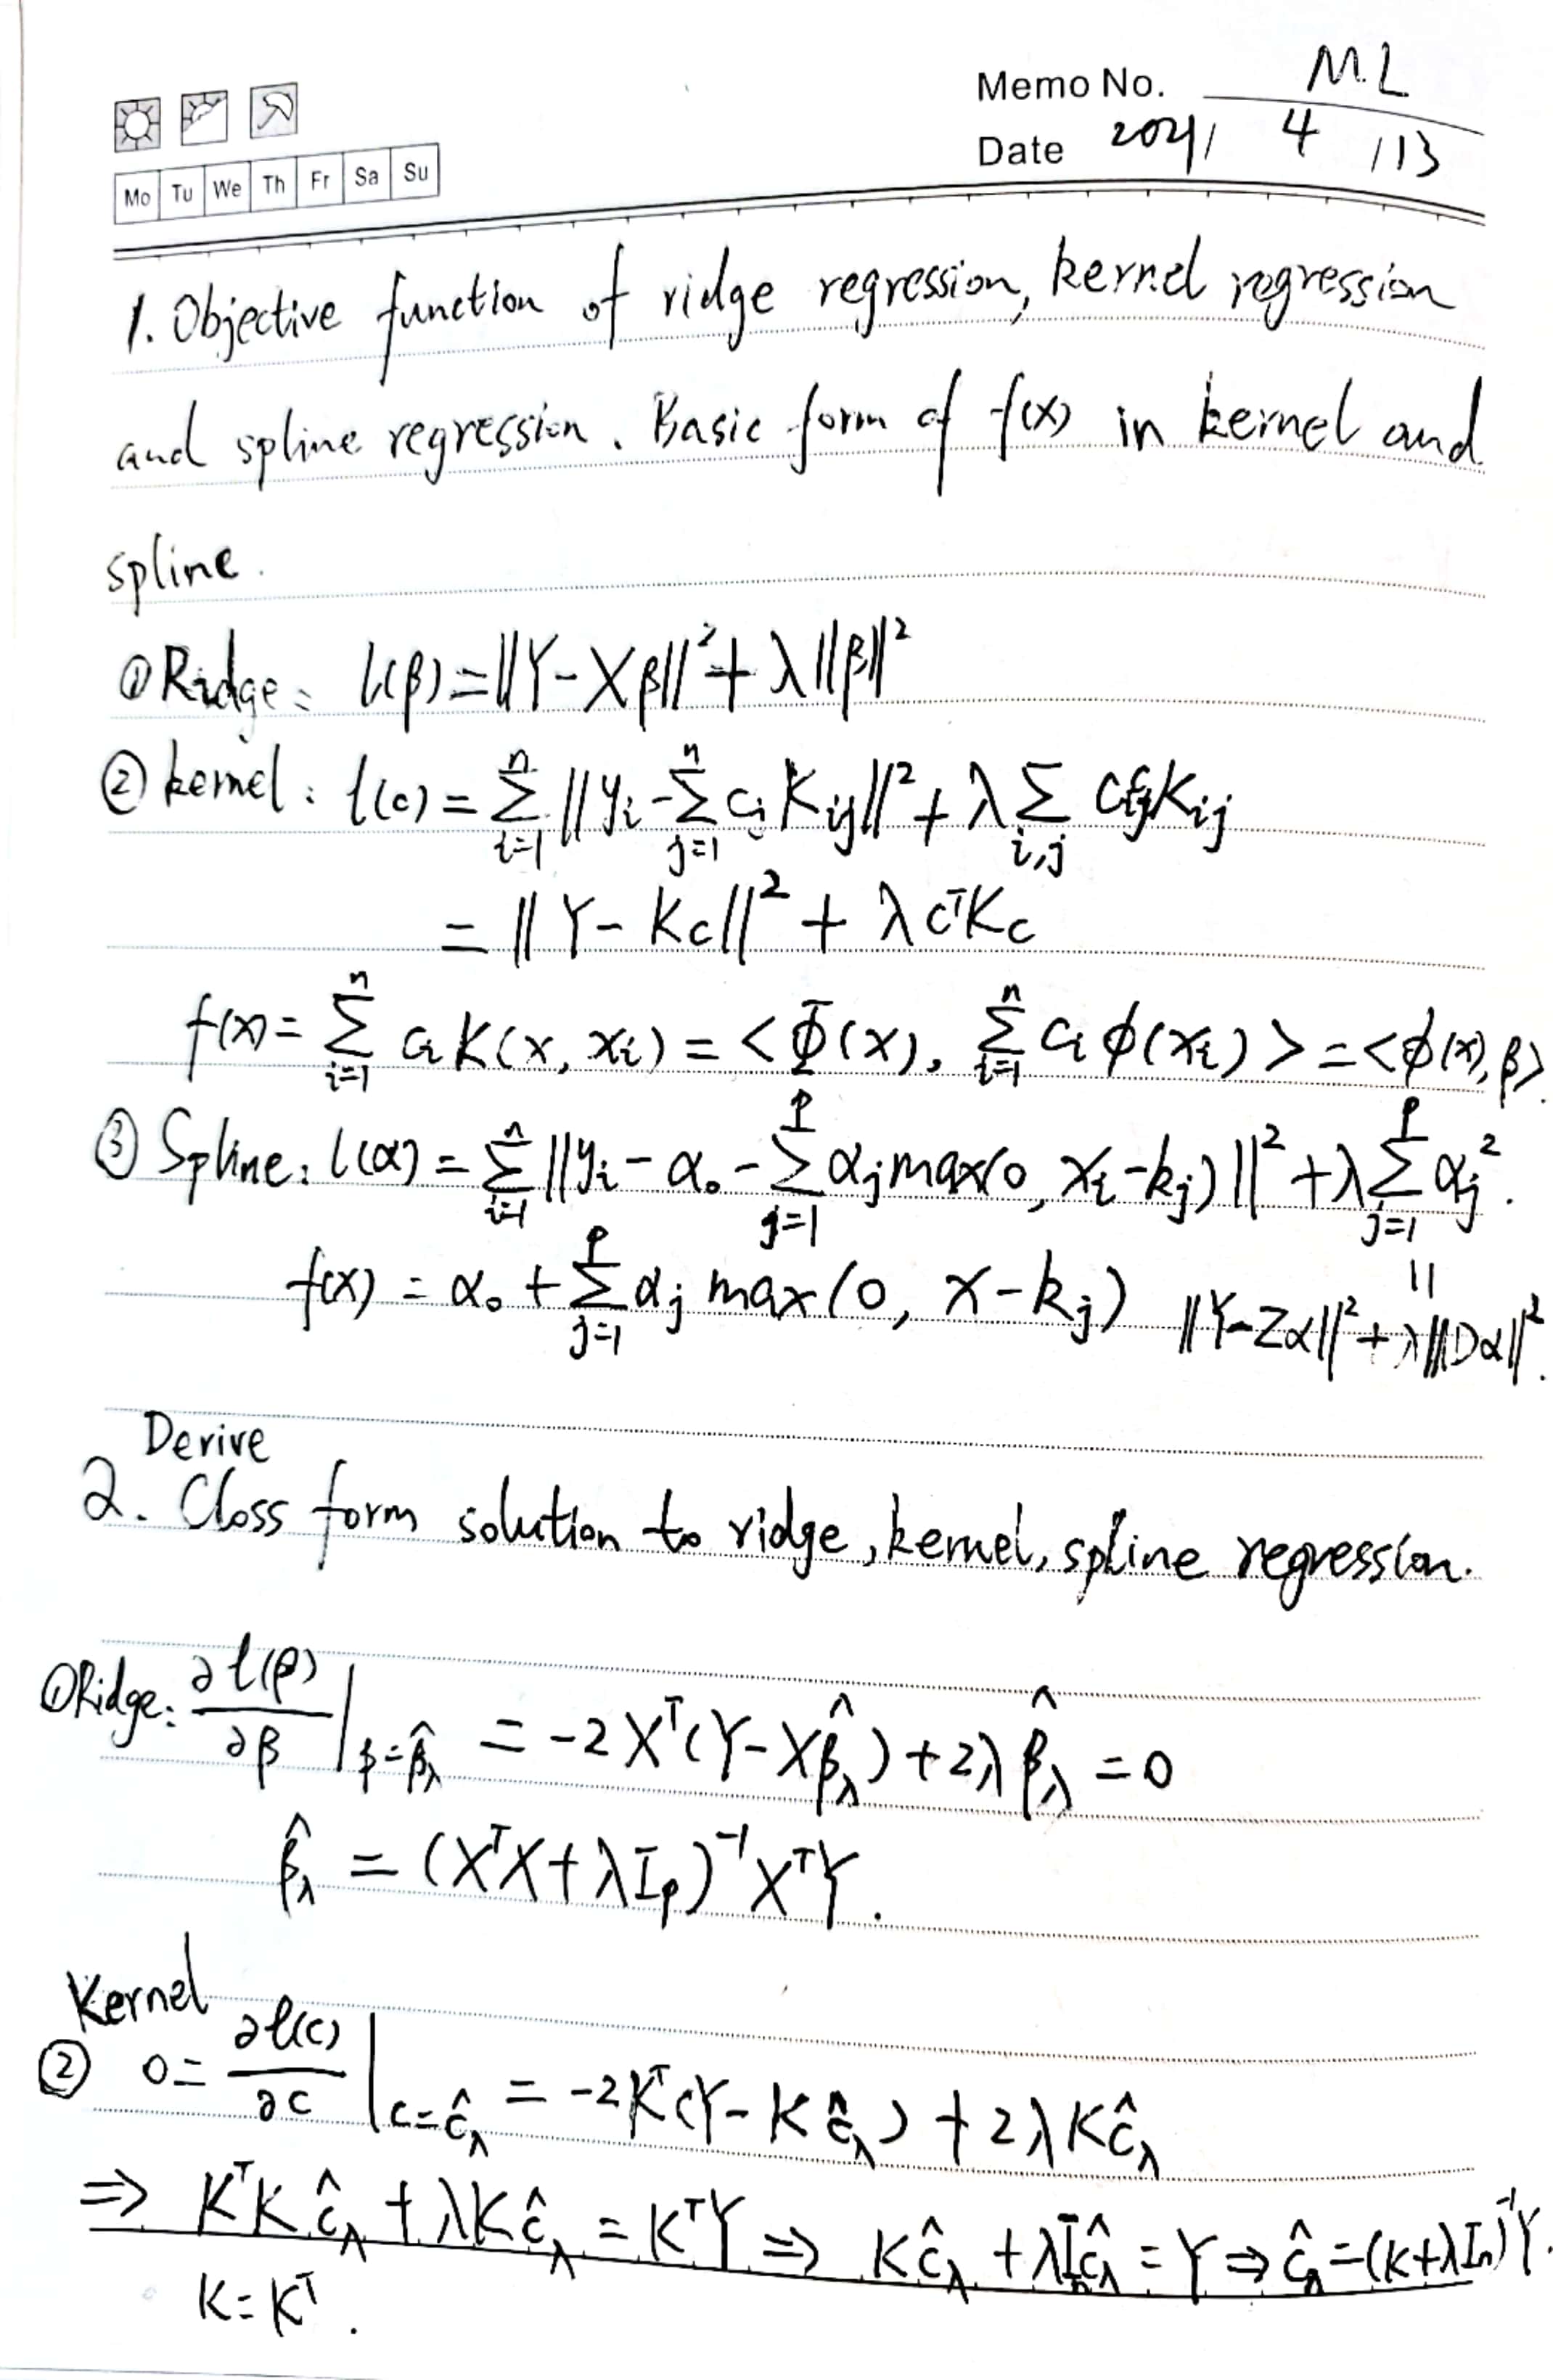 Memo No. ML
Mo Tu We Th Fr Sa Su
Date 2021 / 4 / 13
1. Objective function of ridge regression, kernel regression
and spline regression. Basic form of f(x) in kernel and
spline.
① Ridge: l(β) = ||Y - Xβ||² + λ||β||²
② kernel: l(c) = Σ_{i=1}^{n} ||y_i - Σ_{j=1}^{n} c_j K_{ij}||² + λ Σ_{i,j} c_i c_j K_{ij}
= ||Y - Kc||² + λ cᵀKc
f(x) = Σ_{i=1}^{n} c_i K(x, x_i) = <Φ(x), Σ_{i=1}^{n} c_i ϕ(x_i)> = <ϕ(x), β>.
③ Spline: l(α) = Σ_{i=1}^{n} ||y_i - α_0 - Σ_{j=1}^{p} α_j max(0, x_i - k_j)||² + λ Σ_{j=1}^{p} α_j².
f(x) = α_0 + Σ_{j=1}^{p} α_j max(0, x - k_j)
||
||Y - Zα||² + λ||Dα||².
Derive
2. Closs form solution to ridge, kernel, spline regression.
① Ridge: ∂l(β)/∂β |_{β=β̂_λ} = -2Xᵀ(Y - Xβ̂_λ) + 2λβ̂_λ = 0
β̂_λ = (XᵀX + λI_p)⁻¹XᵀY.
Kernel
② 0 = ∂l(c)/∂c |_{c=ĉ_λ} = -2Kᵀ(Y - Kĉ_λ) + 2λKĉ_λ
⇒ KᵀKĉ_λ + λKĉ_λ = KᵀY ⇒ Kĉ_λ + λI_nĉ_λ = Y ⇒ ĉ_λ = (K + λI_n)⁻¹Y.
K = Kᵀ.